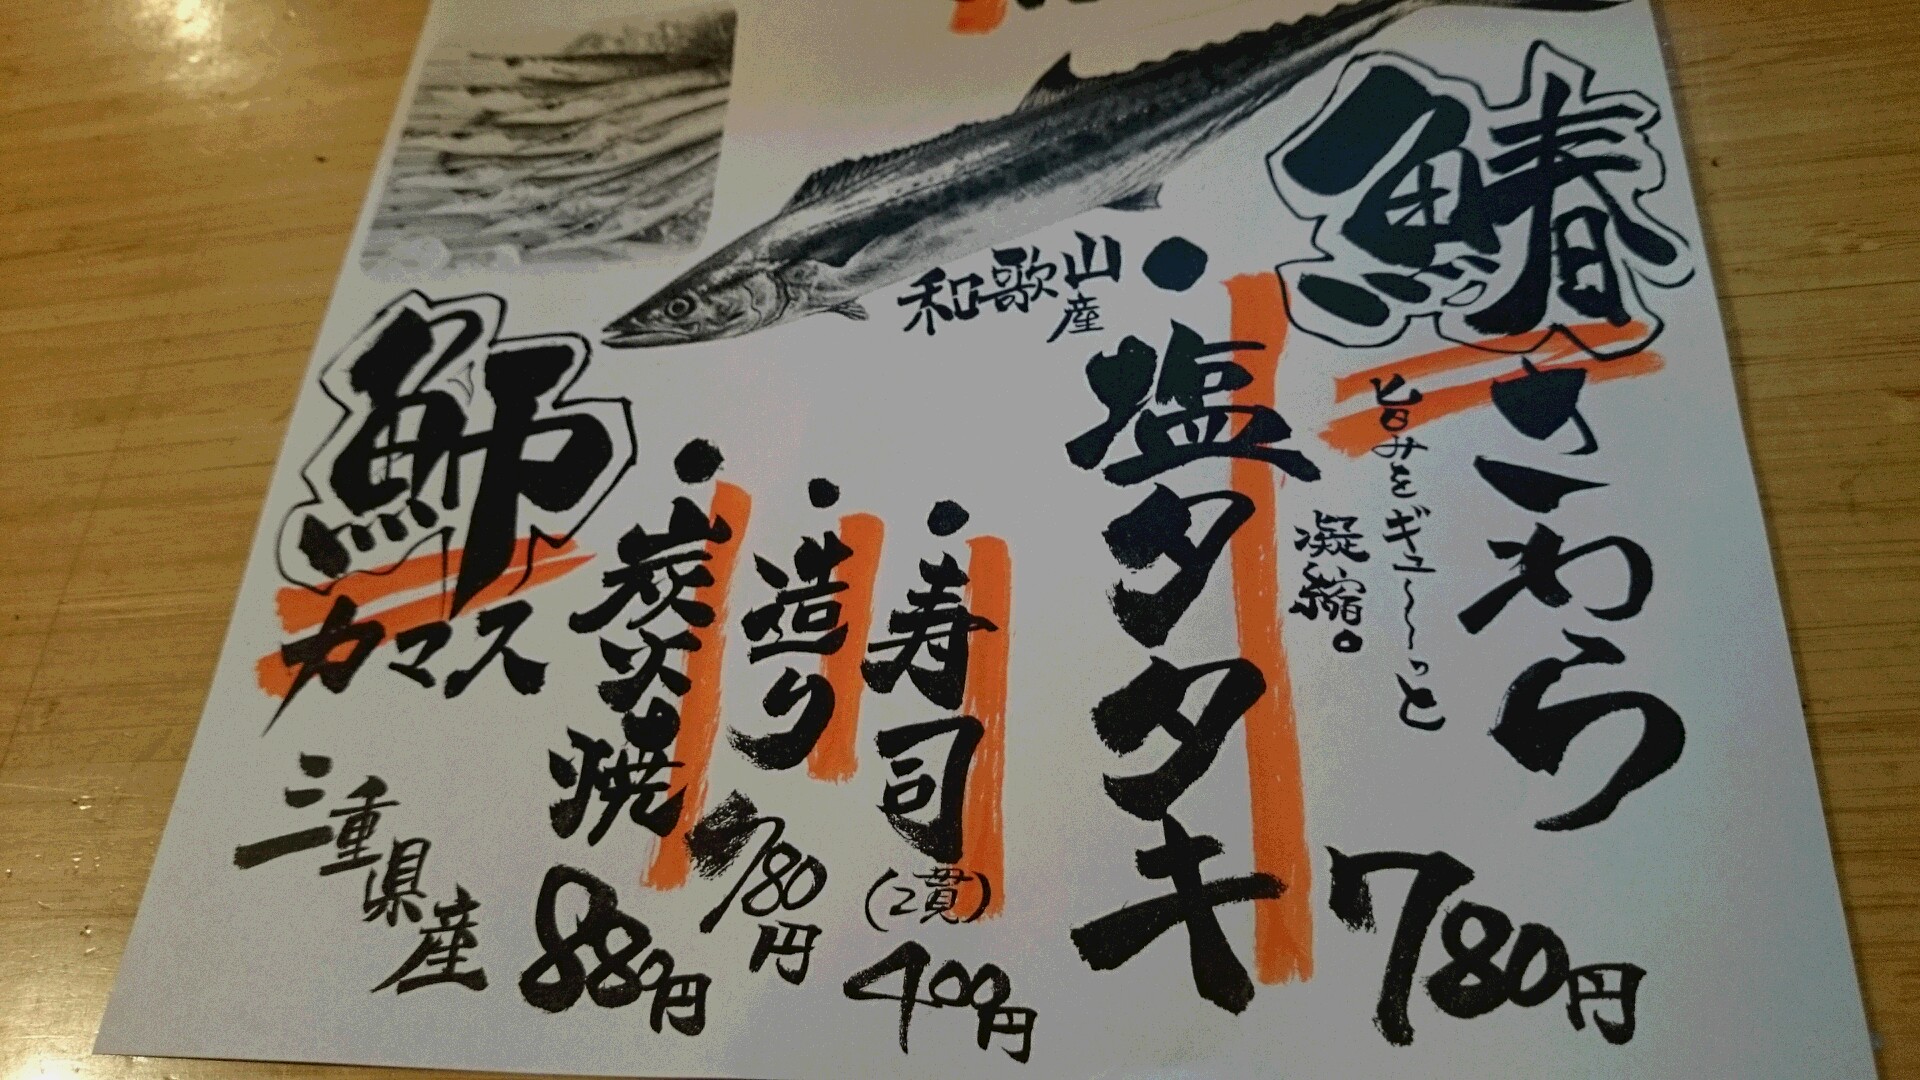 鰆
さわら
旨みをギュ〜〜〜っと
凝縮。
和歌山産
・塩タタキ
780円
・寿司
(2貫)
400円
・造り
780円
・炭火焼
880円
魳
カマス
三重県産